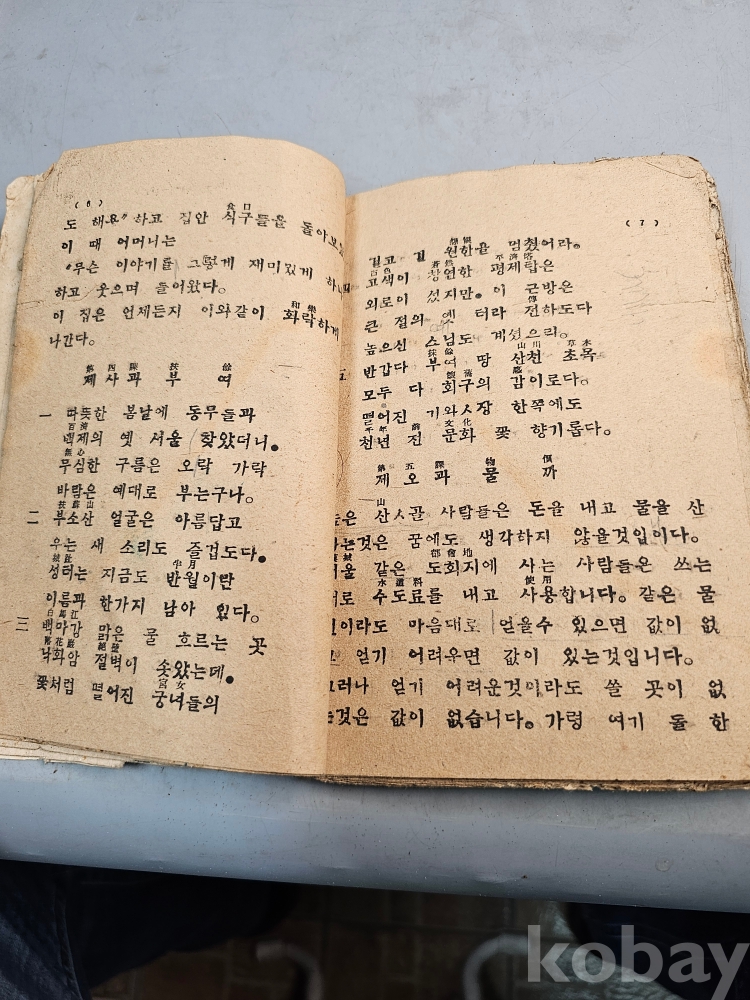 (6)
食口
도 해요" 하고 집안 식구들을 돌아보는
이 때 어머니는
"무슨 이야기를 그렇게 재미있게 하니
하고 웃으며 들어왔다。
和樂
이 집은 언제든지 이와같이 화락하게
나간다。
第四課 扶餘
제사과 부여
一 따뜻한 봄날에 동무들과
百濟
백제의 옛 서울 찾았더니。
無心
무심한 구름은 오락 가락
바람은 예대로 부는구나。
扶蘇山
二 부소산 얼굴은 아름답고
우는 새 소리도 즐겁도다。
城 半月
성터는 지금도 반월이란
이름과 한가지 남아 있다。
白馬江
三 백마강 맑은 물 흐르는 곳
落花岩 絕壁
낙화암 절벽이 솟았는데。
宮女
꽃처럼 떨어진 궁녀들의
(7)
길고 긴 원한을 멈췄어라。
古色 蒼然 平濟塔
고색이 창연한 평제탑은
외로이 섰지만。이 근방은
傳
큰 절의 터라 전하도다
높으신 스님도 계셨으리。
扶餘 山川 草木
반갑다 부여 땅 산천 초목
懷舊 感
모두 다 회구의 감이로다。
떨어진 기와 장 한쪽에도
千年 前 文化
천년 전 문화 꽃 향기롭다。
第五課 物
제오과 물
山
은 산 사람들은 돈을 내고 물을 산
는것은 꿈에도 생각하지 않을것입이다。
都會地
울 같은 도회지에 사는 사람들은 쓰는
水道料 使用
로 수도료를 내고 사용합니다。같은 물
이라도 마음대로 얻을수 있으면 값이 없
얻기 어려우면 값이 있는것입니다。
러나 얻기 어려운것이라도 쓸 곳이 없
는것은 값이 없습니다。가령 여기 돌 한
kobay